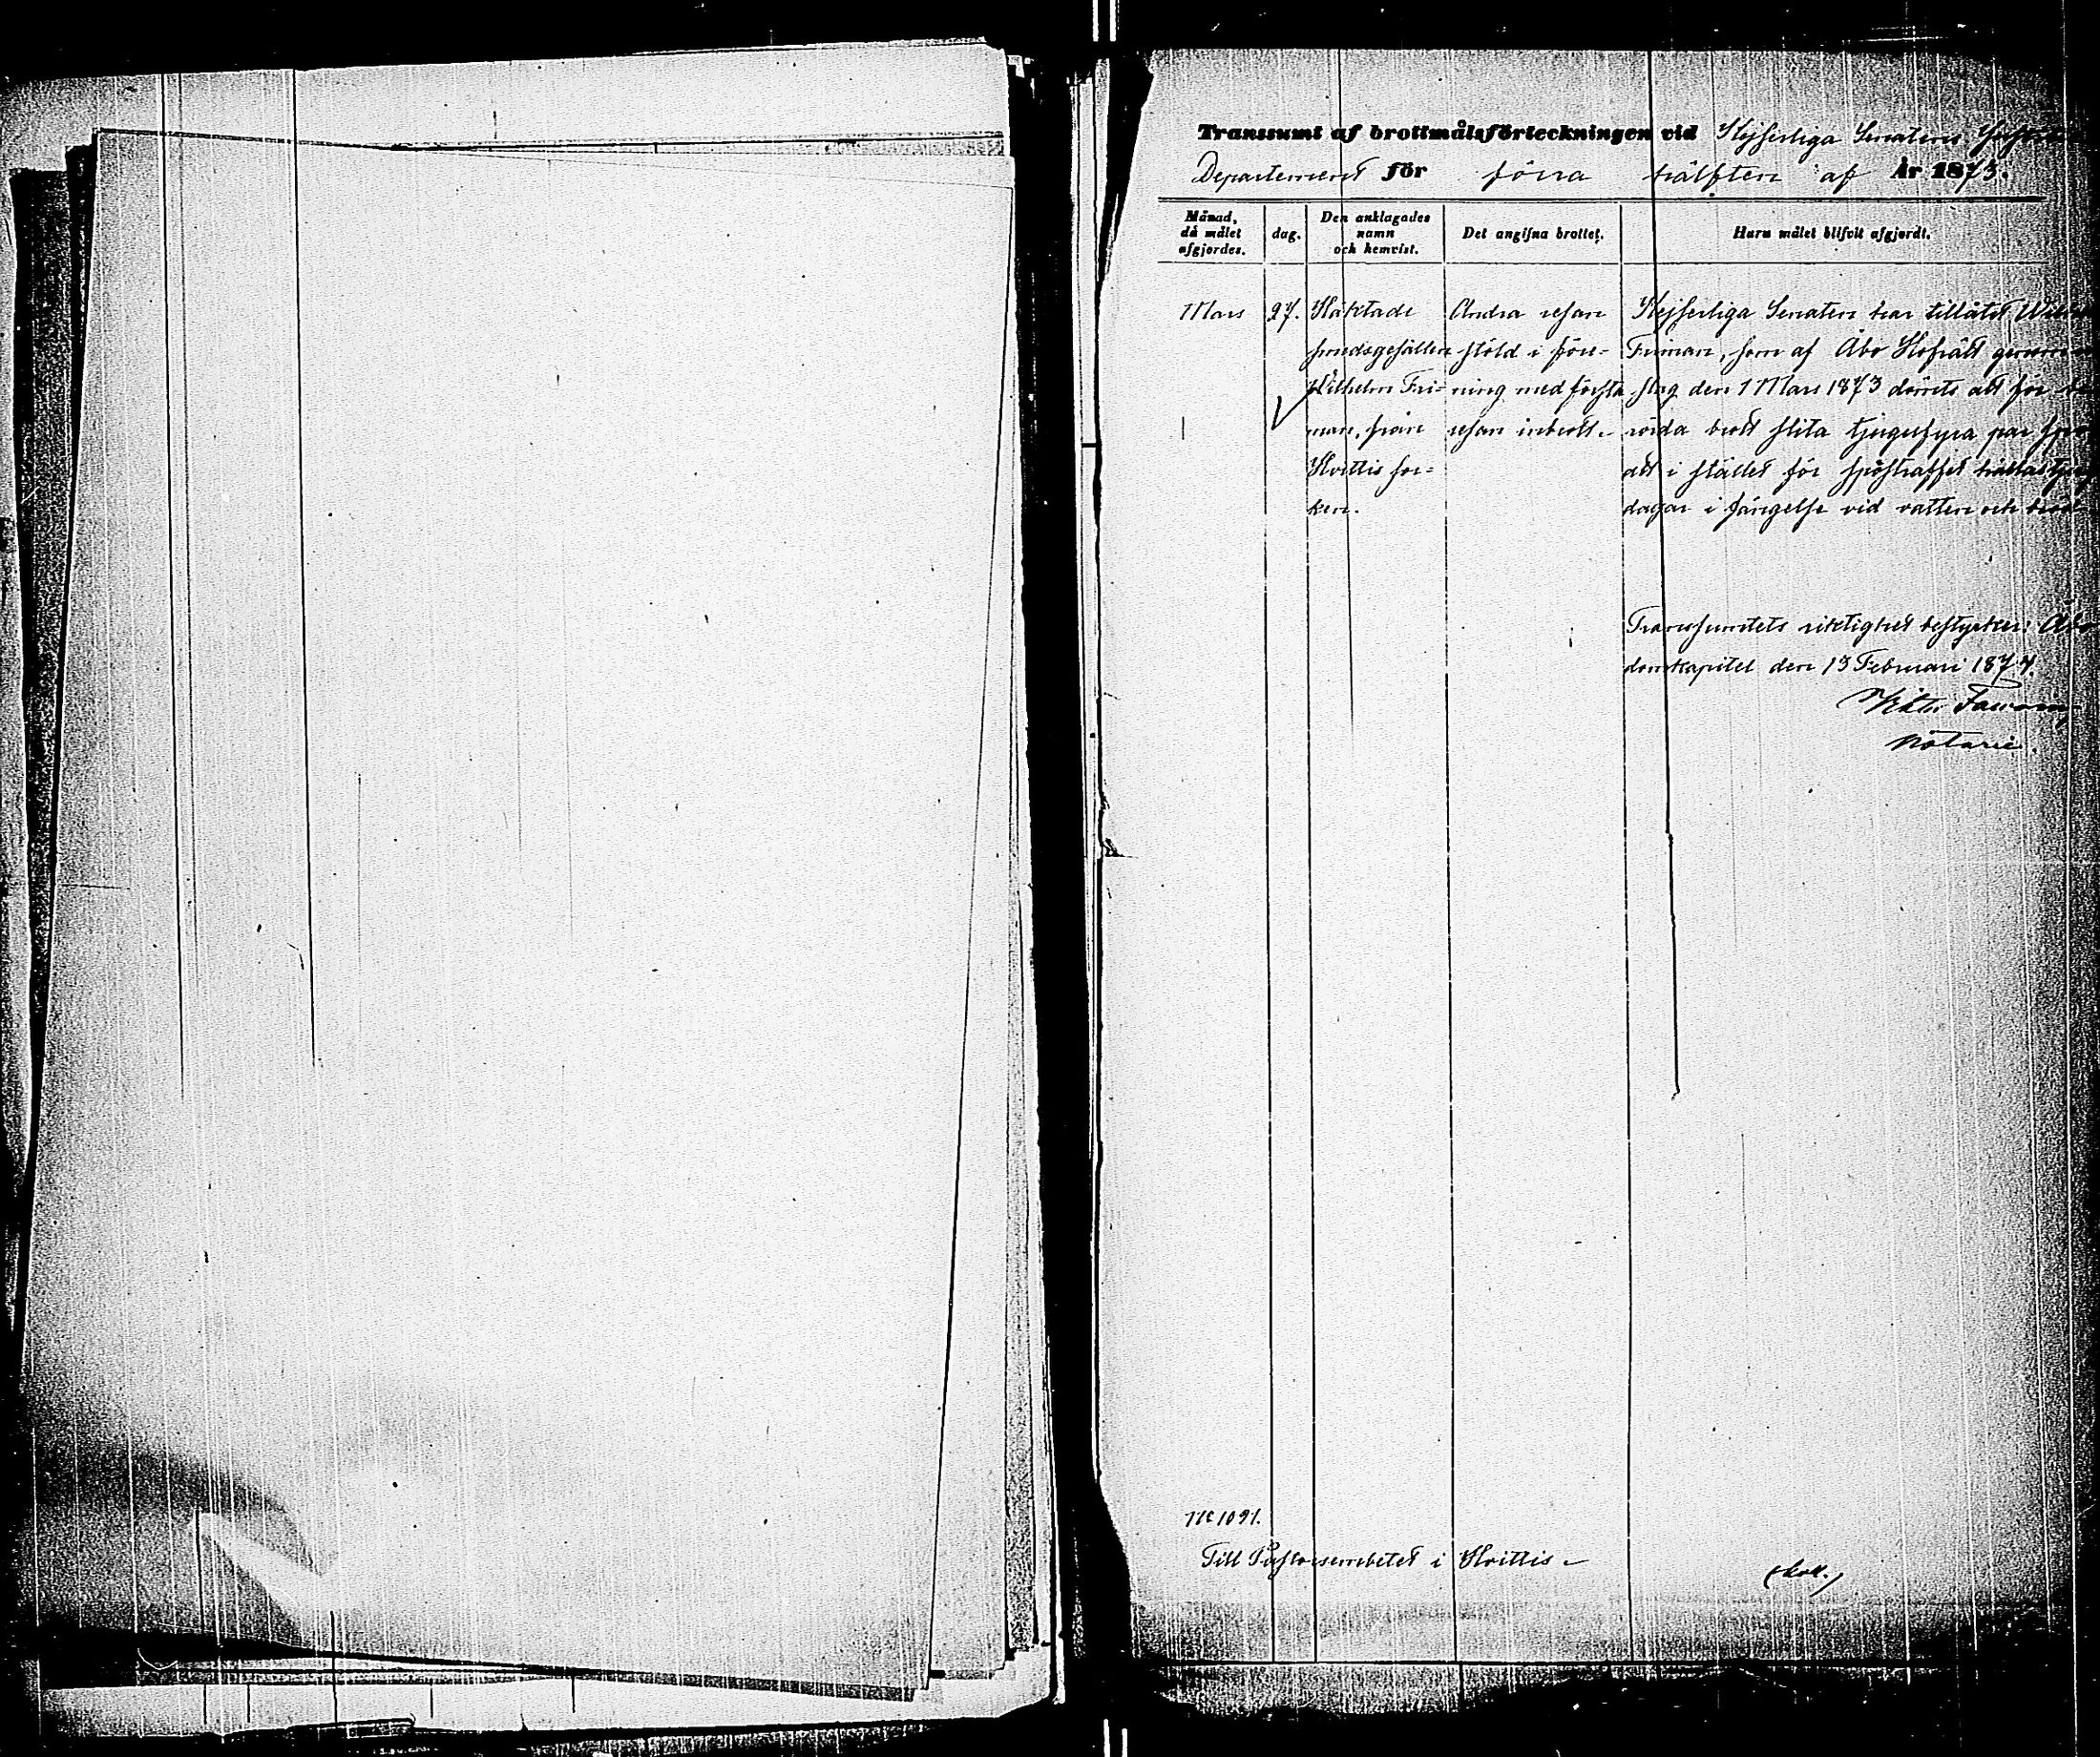 Transsumt af brottmålsförteckningen vid Kejserliga Senatens
Departement för förra hälften af År 1873.
Månad, då målet afgjordes.
dag.
Den anklagades namn och hemvist.
Det angifna brottet.
Huru målet blifvit afgjordt.
Mars
27.
Häktade
smedsgesällen
Wilhelm Fri-
man, från
Hvittis soc-
ken.
Andra resan
stöld i före-
ning med första
resan inbrott.
Kejserliga Senaten har tillåtit
Friman, som af Åbo Hofrätt genom
slag den 1 Mars 1873 dömts att för
rörda brott slita tjugufyra par
att i stället för spöstraffet hållas
dagar i fängelse vid vatten och bröd
Transsumtets riktighet bestyrker: Åbo
domkapitel den 13 Februari 1874.
Notarie.
No 1091.
Till Pastorsembetet i Hvittis
(koll.)